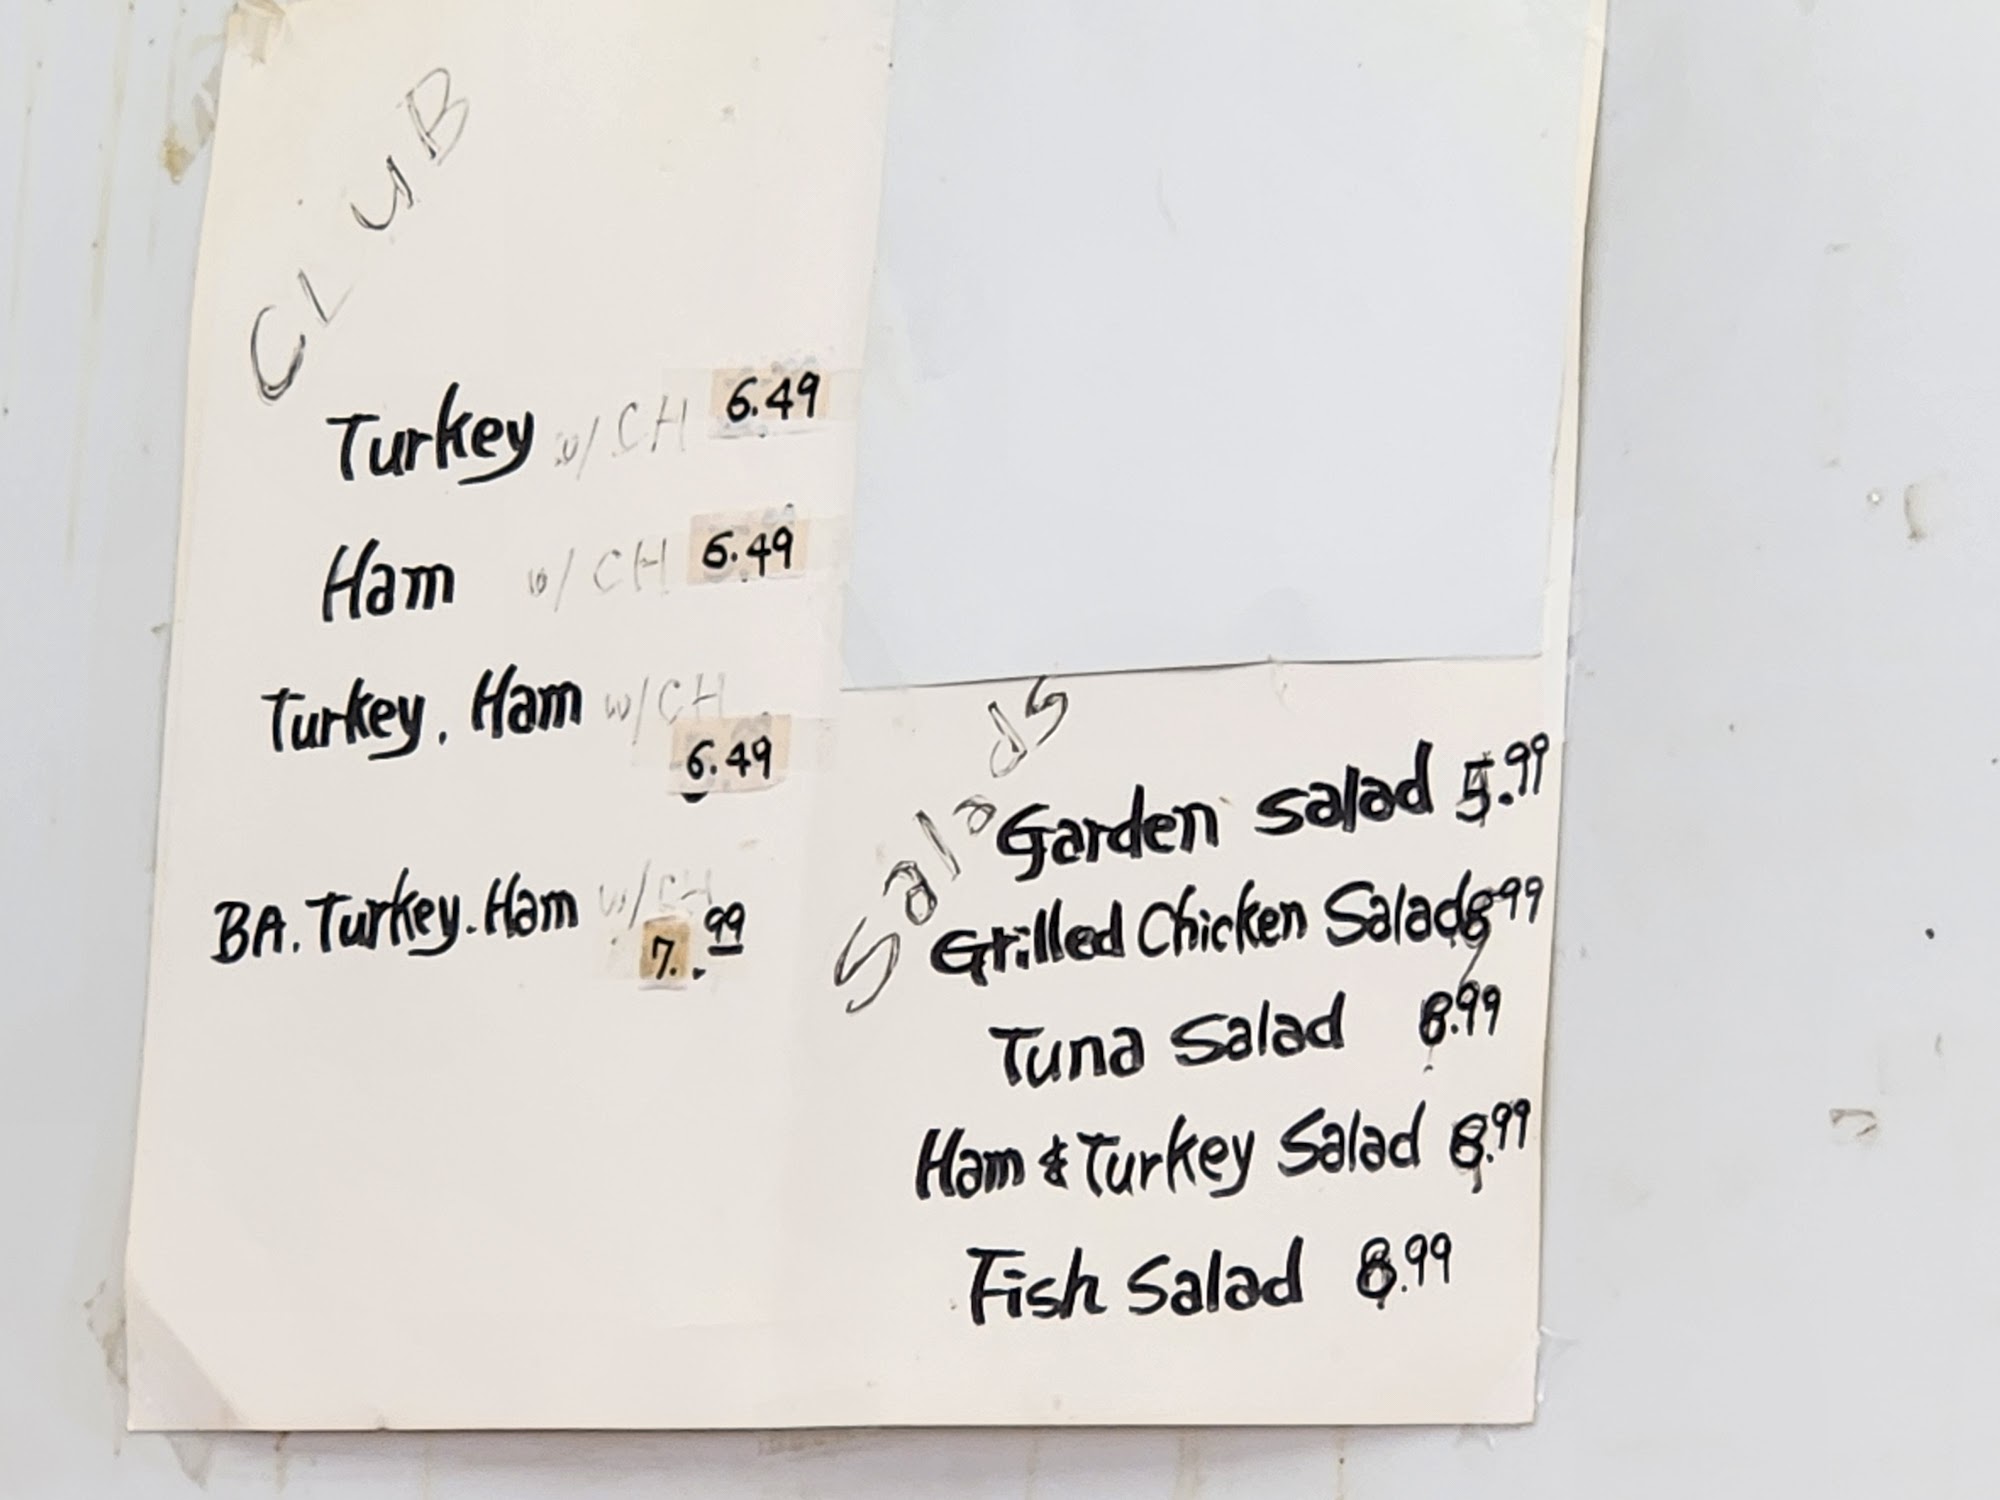 CLUB
Turkey w/ CH 6.49
Ham w/ CH 6.49
Turkey. Ham w/ CH
6.49
BA. Turkey. Ham w/ CH
7.99
Salads
Garden Salad 5.99
Grilled Chicken Salad 8.99
Tuna Salad 8.99
Ham & Turkey Salad 8.99
Fish Salad 8.99